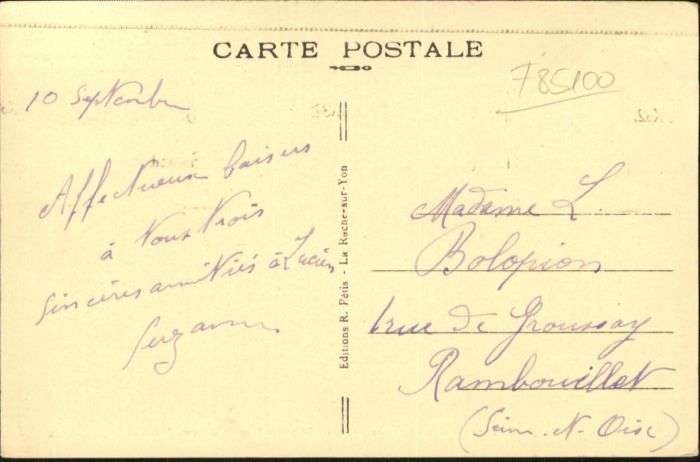 CARTE POSTALE
F85100
10 Septembre
Affectueux baisers
à vous trois
Sincères amitiés à Lucien
Suzanne
Editions R. Pétis - La Roche-sur-Yon
Madame L.
Bolopion
6 rue de Groussay
Rambouillet
(Seine-N-Oise)